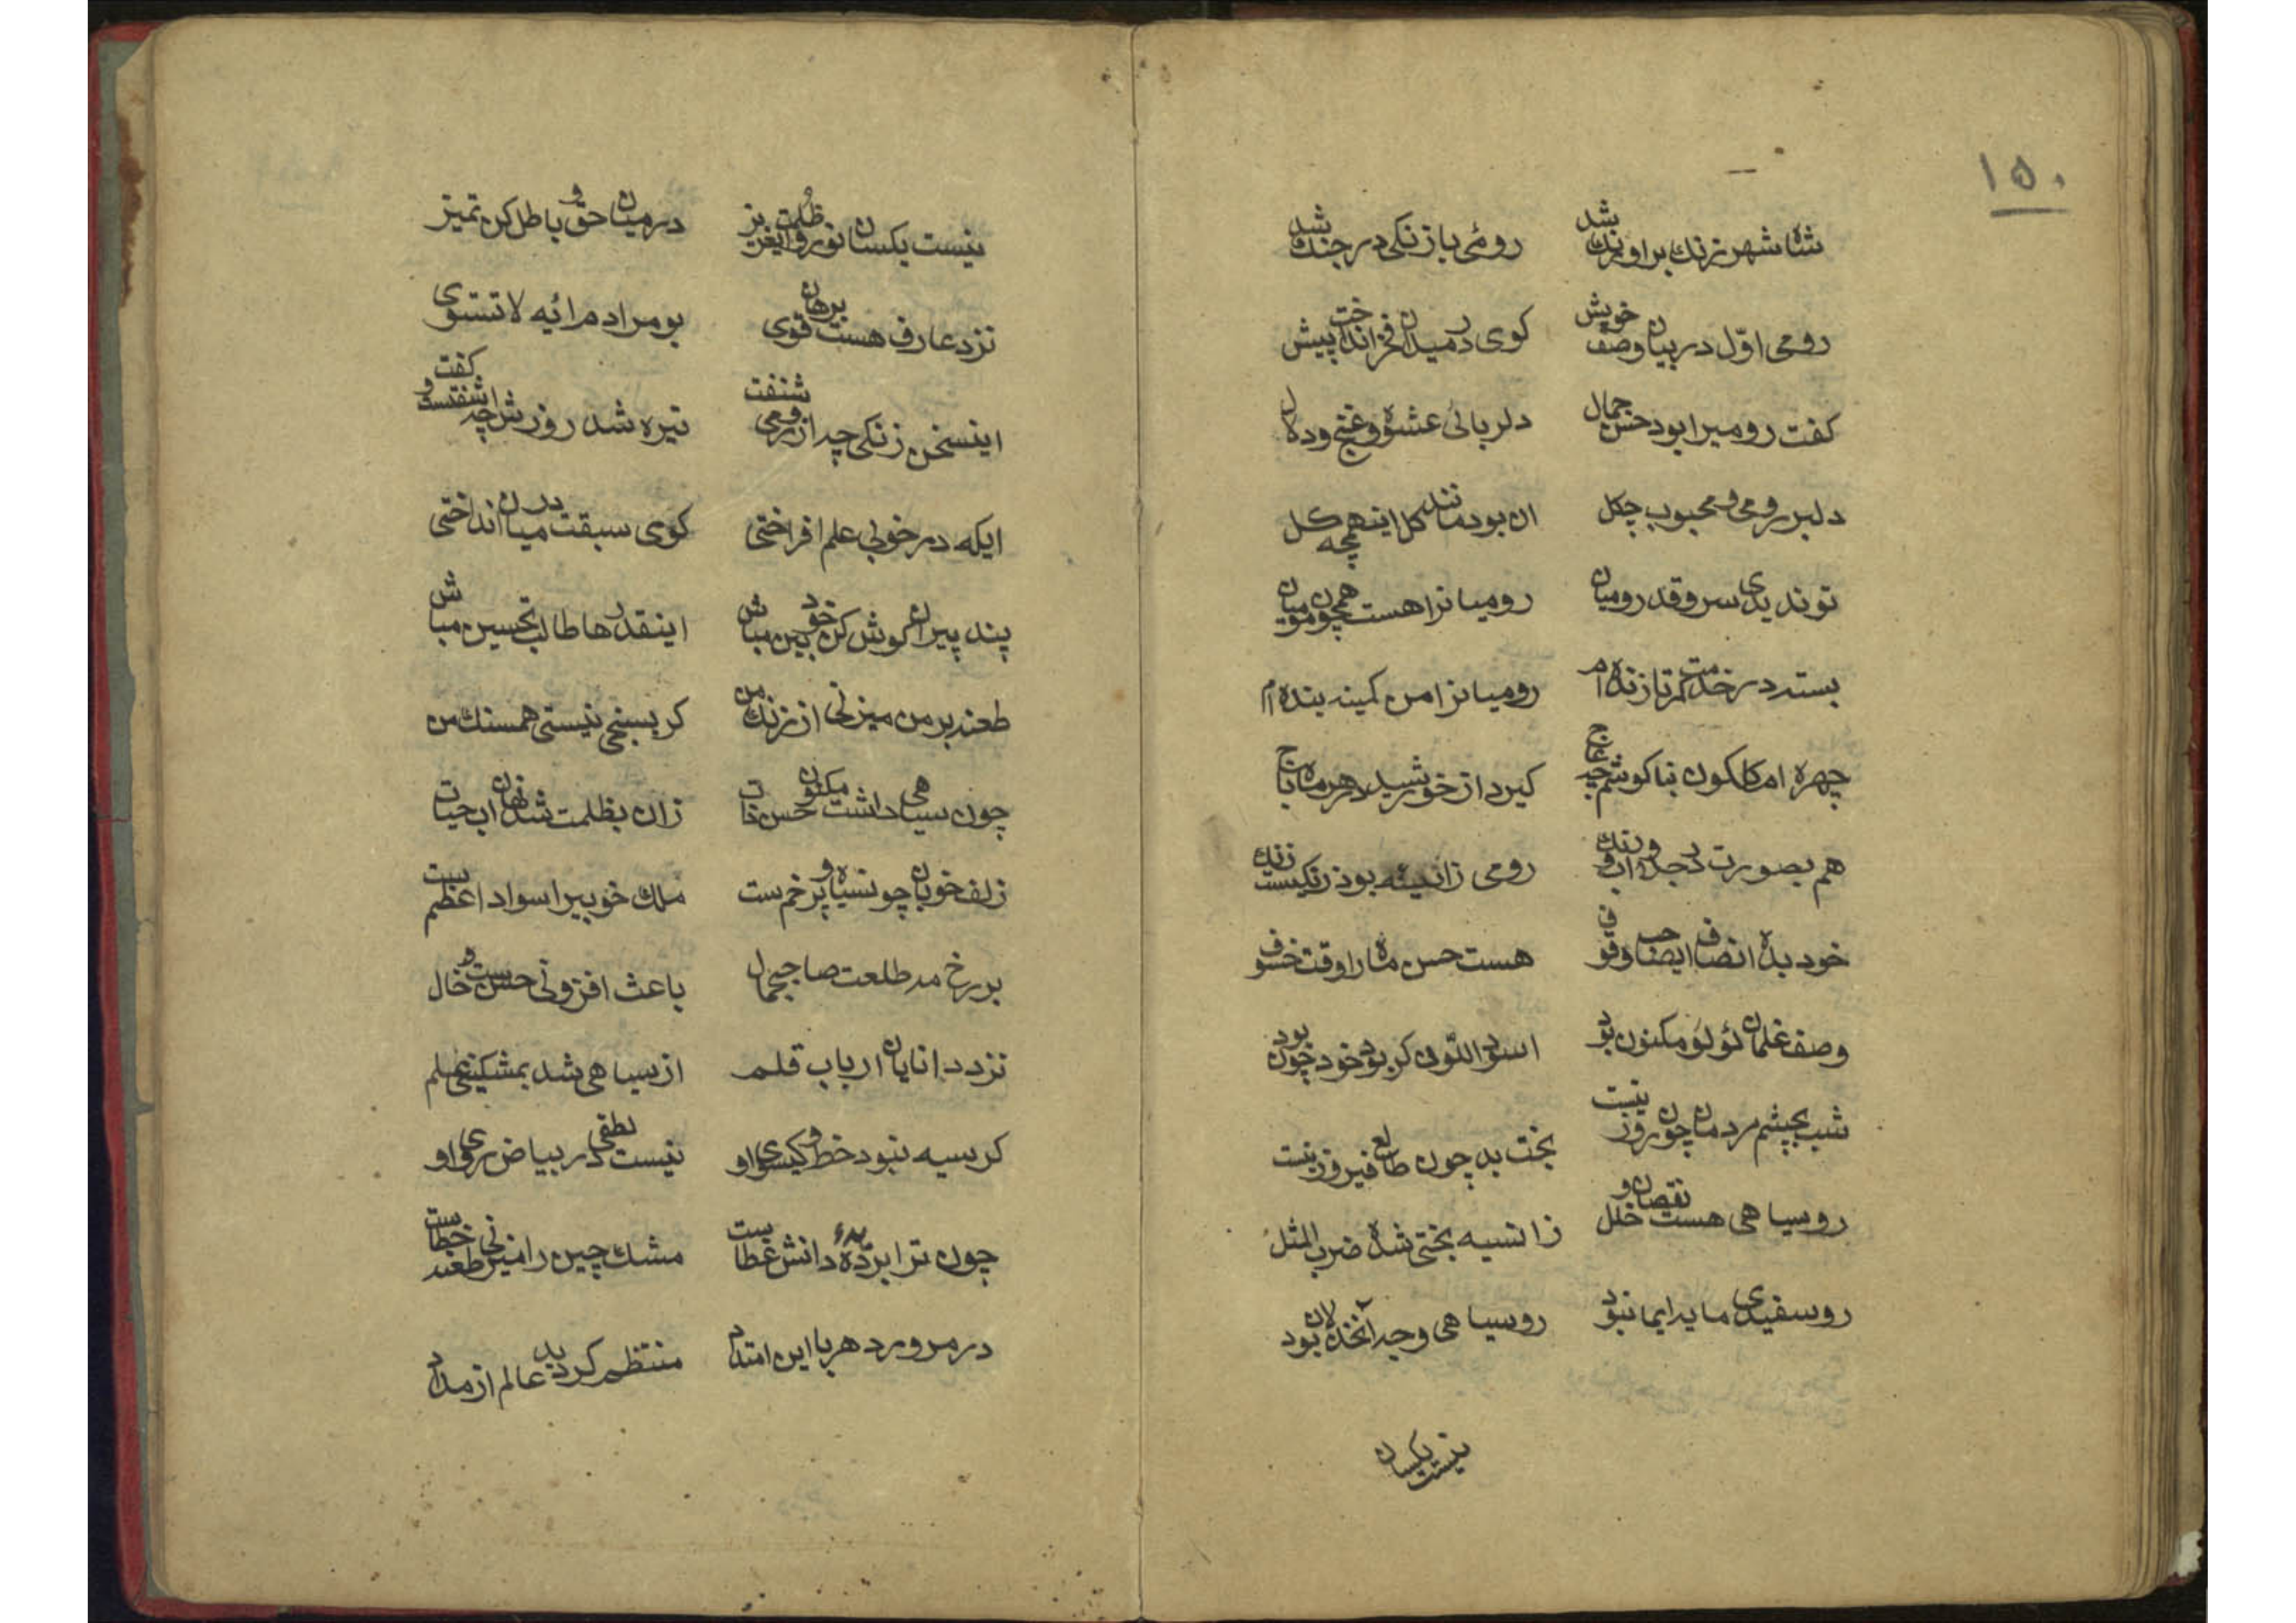 ۱۵۰
شاه شهر زنك بر اورنك شد رومئ با زنكی در جنك شد
رومی اوّل در بیان وصف خویش کوی در میدان فخر انداخت پیش
کفت رومیرا بود حسن جمال دلربائی عشوه و غنج و دلال
دلبر رومی و محبوب چکل ان بود مانند کل اینهمچه کل
تو ندیدی سرو قد رومیان رومیانرا هست همچون مو میان
بسته در خدمت کمر تا زنده‌ام رومیانرا من کمینه بنده‌ام
چهره ام کلکون بنا کوشم چه عاج کیرد از خورشید هر مه باج
هم بصورت در جد اب و رنك رومی ز ائینه بود زنکیست زنك
خود بده انصاف ایصاحب وقوف هست حسن ماه را وقت خسوف
وصف غلمان لؤلؤ مکنون بود اسود اللّون کر بود خود چون بود
شب بچشم مردمان چون روز نیست بخت بد چون طالع فیروز نیست
روسیاهی هست نقصان و خلل زانسیه بختی شده ضرب المثل
روسفیدی مایه ایمان بود روسیاهی وجه آنخذلان بود
نیست یکسان
نیست یکسان نور و ظلمت ایعزیز در میان حق و باطل کن تمیز
نزد عارف هست برهان قوی بو مراد م ائیه لا تستوی
اینسخن زنکی چه از رومی شنفت تیره شد روزش چه اشفتست و کفت
ایکه در خوبی علم افراختی کوی سبقت در میان انداختی
پند پیران کوش کن خود بین مباش اینقدرها طالب تحسین مباش
طعنه بر من میزنی از رنك من کر بسنجی نیستی همسنك من
چون سیاهی داشت مکنون حسن ذات زان بظلمت شد نهان اب حیات
زلف خوبان چونسیاه و پر خمست ملك خوبیرا سواد اعظمست
بر رخ مه طلعت صاحبجمال باعث افزونی حسنست و خال
نزد دانایان ارباب قلم از سیاهی شد بمشکینی علم
کر سیه نبود خط و کیسوی او نیست لطفی در بیاض روی او
چون ترا بر دیدهٔ دانش غطاست مشك چین را میزنی طعنه خطاست
در مرور دهر با این امتداد منتظم کردید عالم از مداد